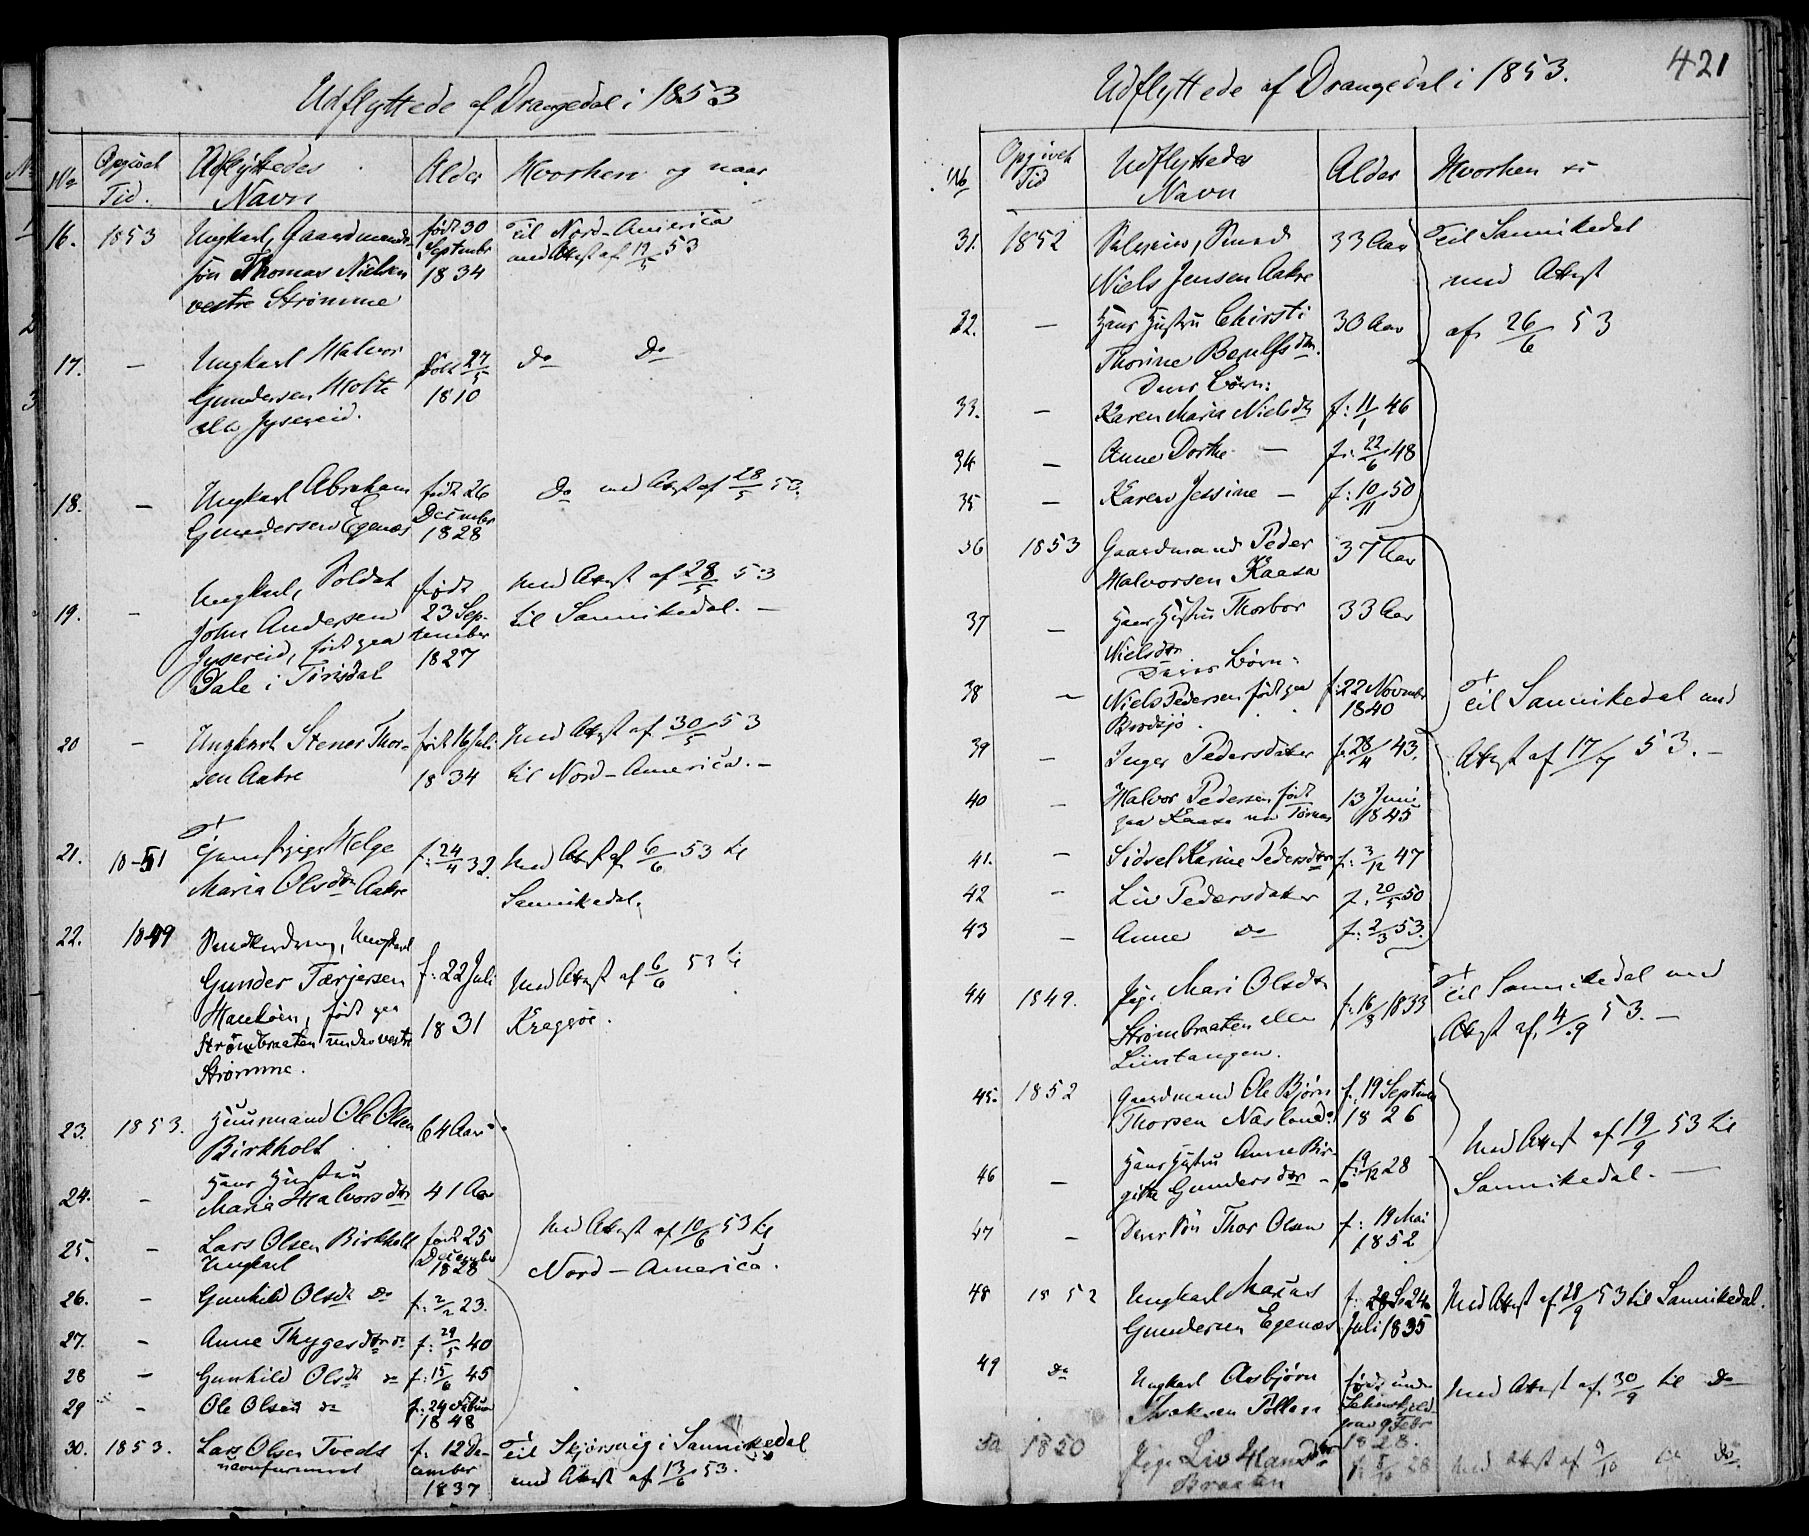 Udflyttede af Drangedal i 1853
No Opgivet Tid. Udflyttedes Navn Alder Hvorhen og naar
16. 1853 Ungkarl, Gaardmands- født 30 Til Nord-America
søn Thomas Nielsen Septembr med Attest af 19/5 53
vestre Strømme 1834
17. — Ungkarl Halvor født 27/5 Do Do
Gundersen Holte 1810
alo Jysereid.
18. — Ungkarl Abraham født 26 Do med Attest af 28/5 53.
Gundersen Egenæs December
1828
19. — Ungkarl, Soldat født Med Attest af 28/5 53
John Andersen 23 Sep- til Sannikedal. —
Jysereid, født paa tember
Dale i Tørisdal 1827
20 — Ungkarl Stener Thor- født 16 Juli Med Attest af 30/5 53
sen Aakre 1834 til Nord-America. —
21. 18-51 Pige Helge f: 24/4 32. Med Attest af 6/6 53 til
Maria Olsdtr Aakre Sannikedal.
22. 1849 Ungkarl
Gunder Tærjersen f: 22 Juli Med Attest af 6/6 53 til
født paa 1831 Kragerøe.
Strømbraaten under vestre
Strømme.
23. 1853. Huusmand Ole Olsen 64 Aar
Birkholt
Hans Hustru
24. — Maria Halvorsdtr 41 Aar
25. — Lars Olsen Birkholt født 25 Med Attest af 10/6 53 til
Ungkarl December Nord-America.
1828
26. — Gunhild Olsdt Do f: 2/2 23.
27. — Anne Thygesdtr do f: 29/5 40
28 — Gunhild Olsdt do f: 15/6 45
29 — Ole Olsen do f: 24 Februar
1848
30. 1853. Lars Olsen Tveds f. 12 De- Til Skjørsvig i Sannikedal
uconfirmeret cember med Attest af 13/6 53.
1837
421
Udflyttede af Drangedal i 1853.
No Opgivet Tid Udflyttedes Navn Alder Hvorhen
31. 1852 Smed 33 Aar Til Sannikedal
Niels Jensen Aakre med Attest
32. — Hans Hustru Chirsti 30 Aar af 26/6 53
Thorine
Deres Børn:
33. — Karen Maria Nielsdtr f: 11/1 46
34 — Anne Dorthe — f: 22/6 48
35 — Karen Jessine — f: 10/11 50
36 1853 Gaardmand Peder 37 Aar
Halvorsen Kaasa
37 — Hans Hustru Thorbor 33 Aar
Nielsdtr
Deres Børn:
38 — Niels Pedersen født paa f: 22 Novembr Til Sannikedal med
Brødsjø. 1840
39 — Inger Pedersdater f: 28/4 43. Attest af 17/7 53. —
40 — Halvor Pedersen født 13 Juni
paa Kaasa 1845
41. — Sidsel Karine Pedersdtr f: 3/12 47
42 — Liv Pedersdater f. 20/5 50
43 — Anne do f: 2/3 53.
44 1849. Pige Mari Olsdtr f: 16/3 1833 Til Sannikedal med
Strømbraaten Attest af 4/9 53. —
45. 1852 Gaardmand Ole Bjørn f. 19 Septem
Thorsen Næslund 1826 Med Attest af 19/9 53 til
46 — Hans Hustru Anne Bir- f: 9/12 28 Sannikedal. —
gitte Gundersdtr
47 — Deres Søn Thor Olsen f: 19 Mai
1852
48 1852 Ungkarl f. 24 Med Attest af 28/9 53 til Sannikedal.
Gundersen Egenæs Juli 1835
49 do Ungkarl Asbjørn født under Med Attest af 30/9 til Do
Isaksen 9 Febr
1828.
50 1850 Pige Liv Hansdtr f. 5/10 28 Med Attest af 9/10 til Do.
Braaten